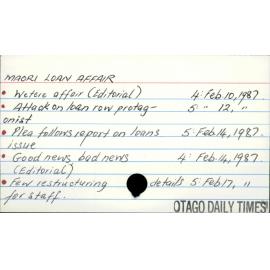 MAORI LOAN AFFAIR
• Wetere affair (Editorial) 4: Feb 10, 1987.
• Attack on loan row protag- 5: " 12, "
onist
• Plea follows report on loans 5: Feb 14, 1987.
issue
• Good news, bad news 4: Feb 14, 1987.
(Editorial)
• Few restructuring details 5: Feb 17, "
for staff.
OTAGO DAILY TIMES